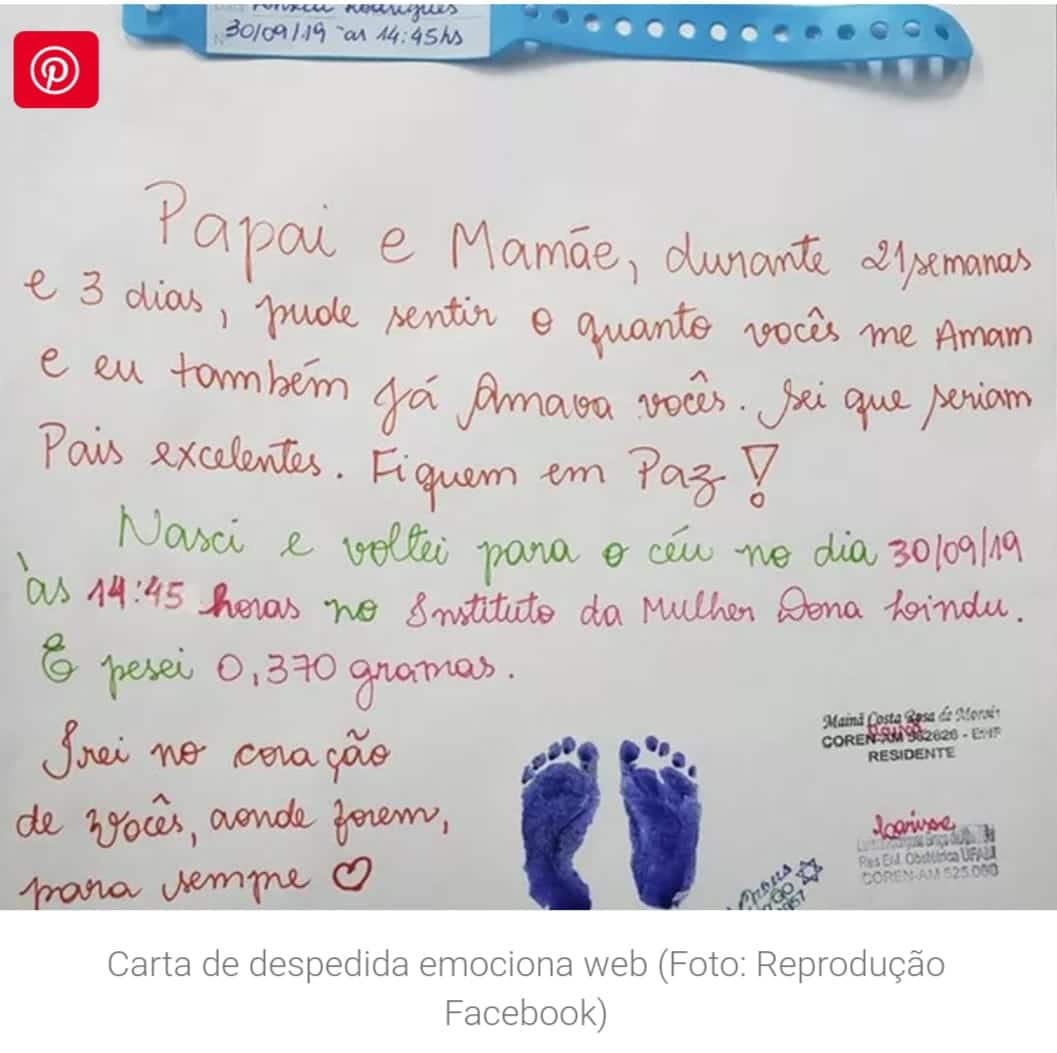 Rodrigues
30/09/19 - as 14:45hs
Papai e Mamãe, durante 21 semanas
e 3 dias, pude sentir o quanto vocês me Amam
e eu também já Amava vocês. Sei que seriam
Pais excelentes. Fiquem em Paz!
Nasci e voltei para o céu no dia 30/09/19
às 14:45 horas no Instituto da Mulher Dona Lindu.
E pesei 0,370 gramas.
Irei no coração
de vocês, aonde forem,
para sempre
Mainã Costa Rosa de
COREN-AM
RESIDENTE
Larisse
Res Enf. Obstétrica UFAM
COREN-AM 525.000
Carta de despedida emociona web (Foto: Reprodução
Facebook)